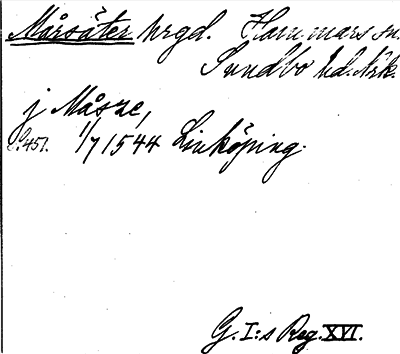 Mårsäter hrgd. Hammars sn.
Sundbo hd. Nrk.
j Måsze,
s. 451. 1/7 1544 Linköping.
G. I:s Reg. XVI.